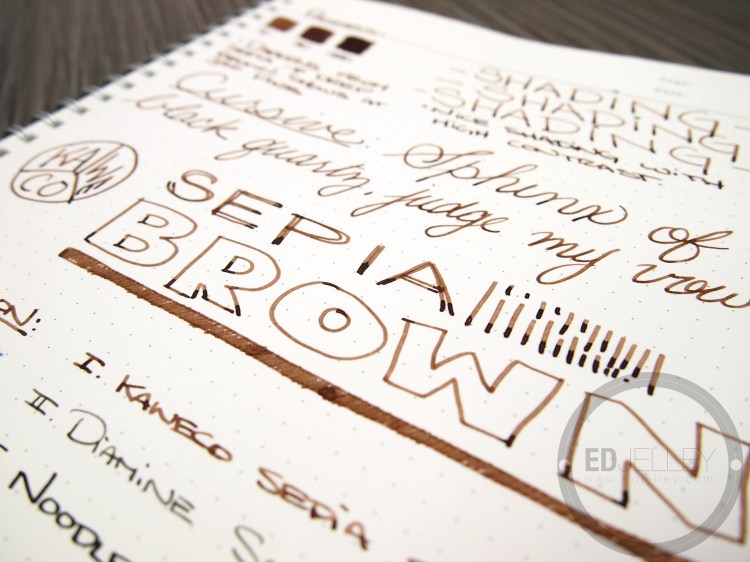 SHADING
SHADING
SHADING
NICE SHADING WITH
HIGH CONTRAST.
Cursive. Sphinx of
black quartz, judge my vow
KAWECO
SEPIA
BROWN
ON:
I. KAWECO SEPIA
II. DIAMINE S
NOODLE
EDJELLEY
www.edjelley.com